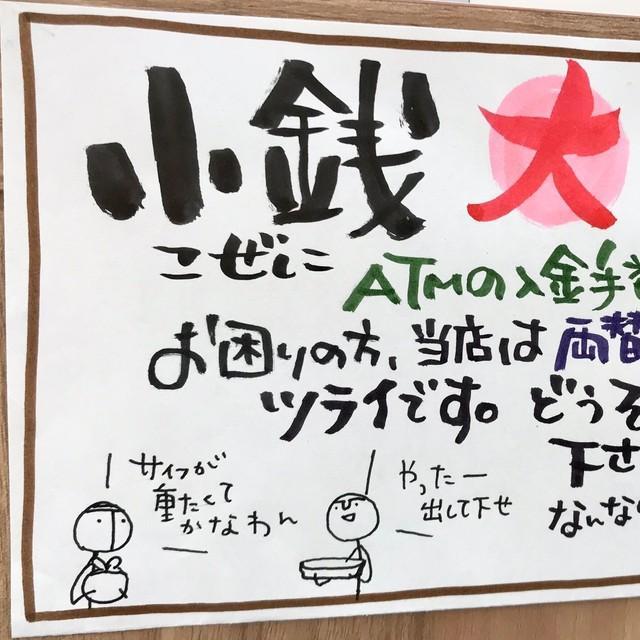 小銭大
こぜに
ATMの入金手数
お困りの方、当店は両替
ツライです。どうぞ
下さ
なんな
サイフが
重たくて
かなわん
やったー
出して下せ